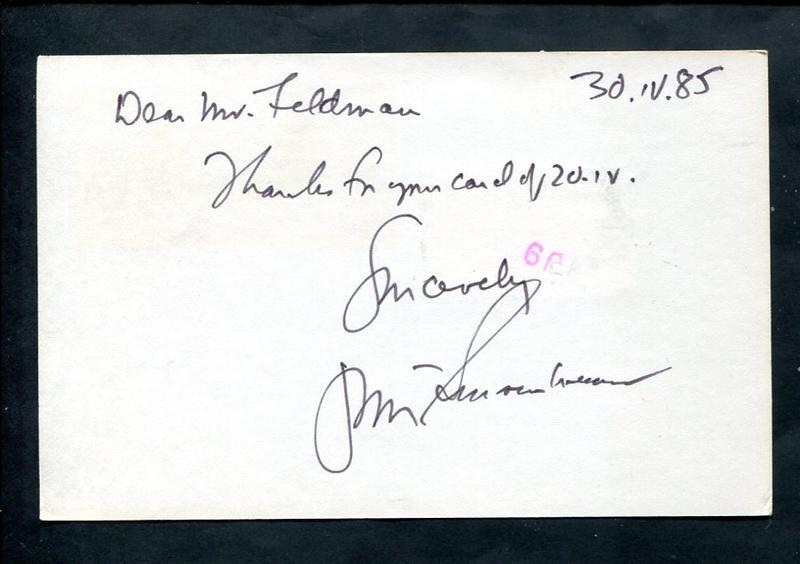 Dear Mr. Feldman
30.IV.85
Thanks for your card of 20.IV.
Sincerely